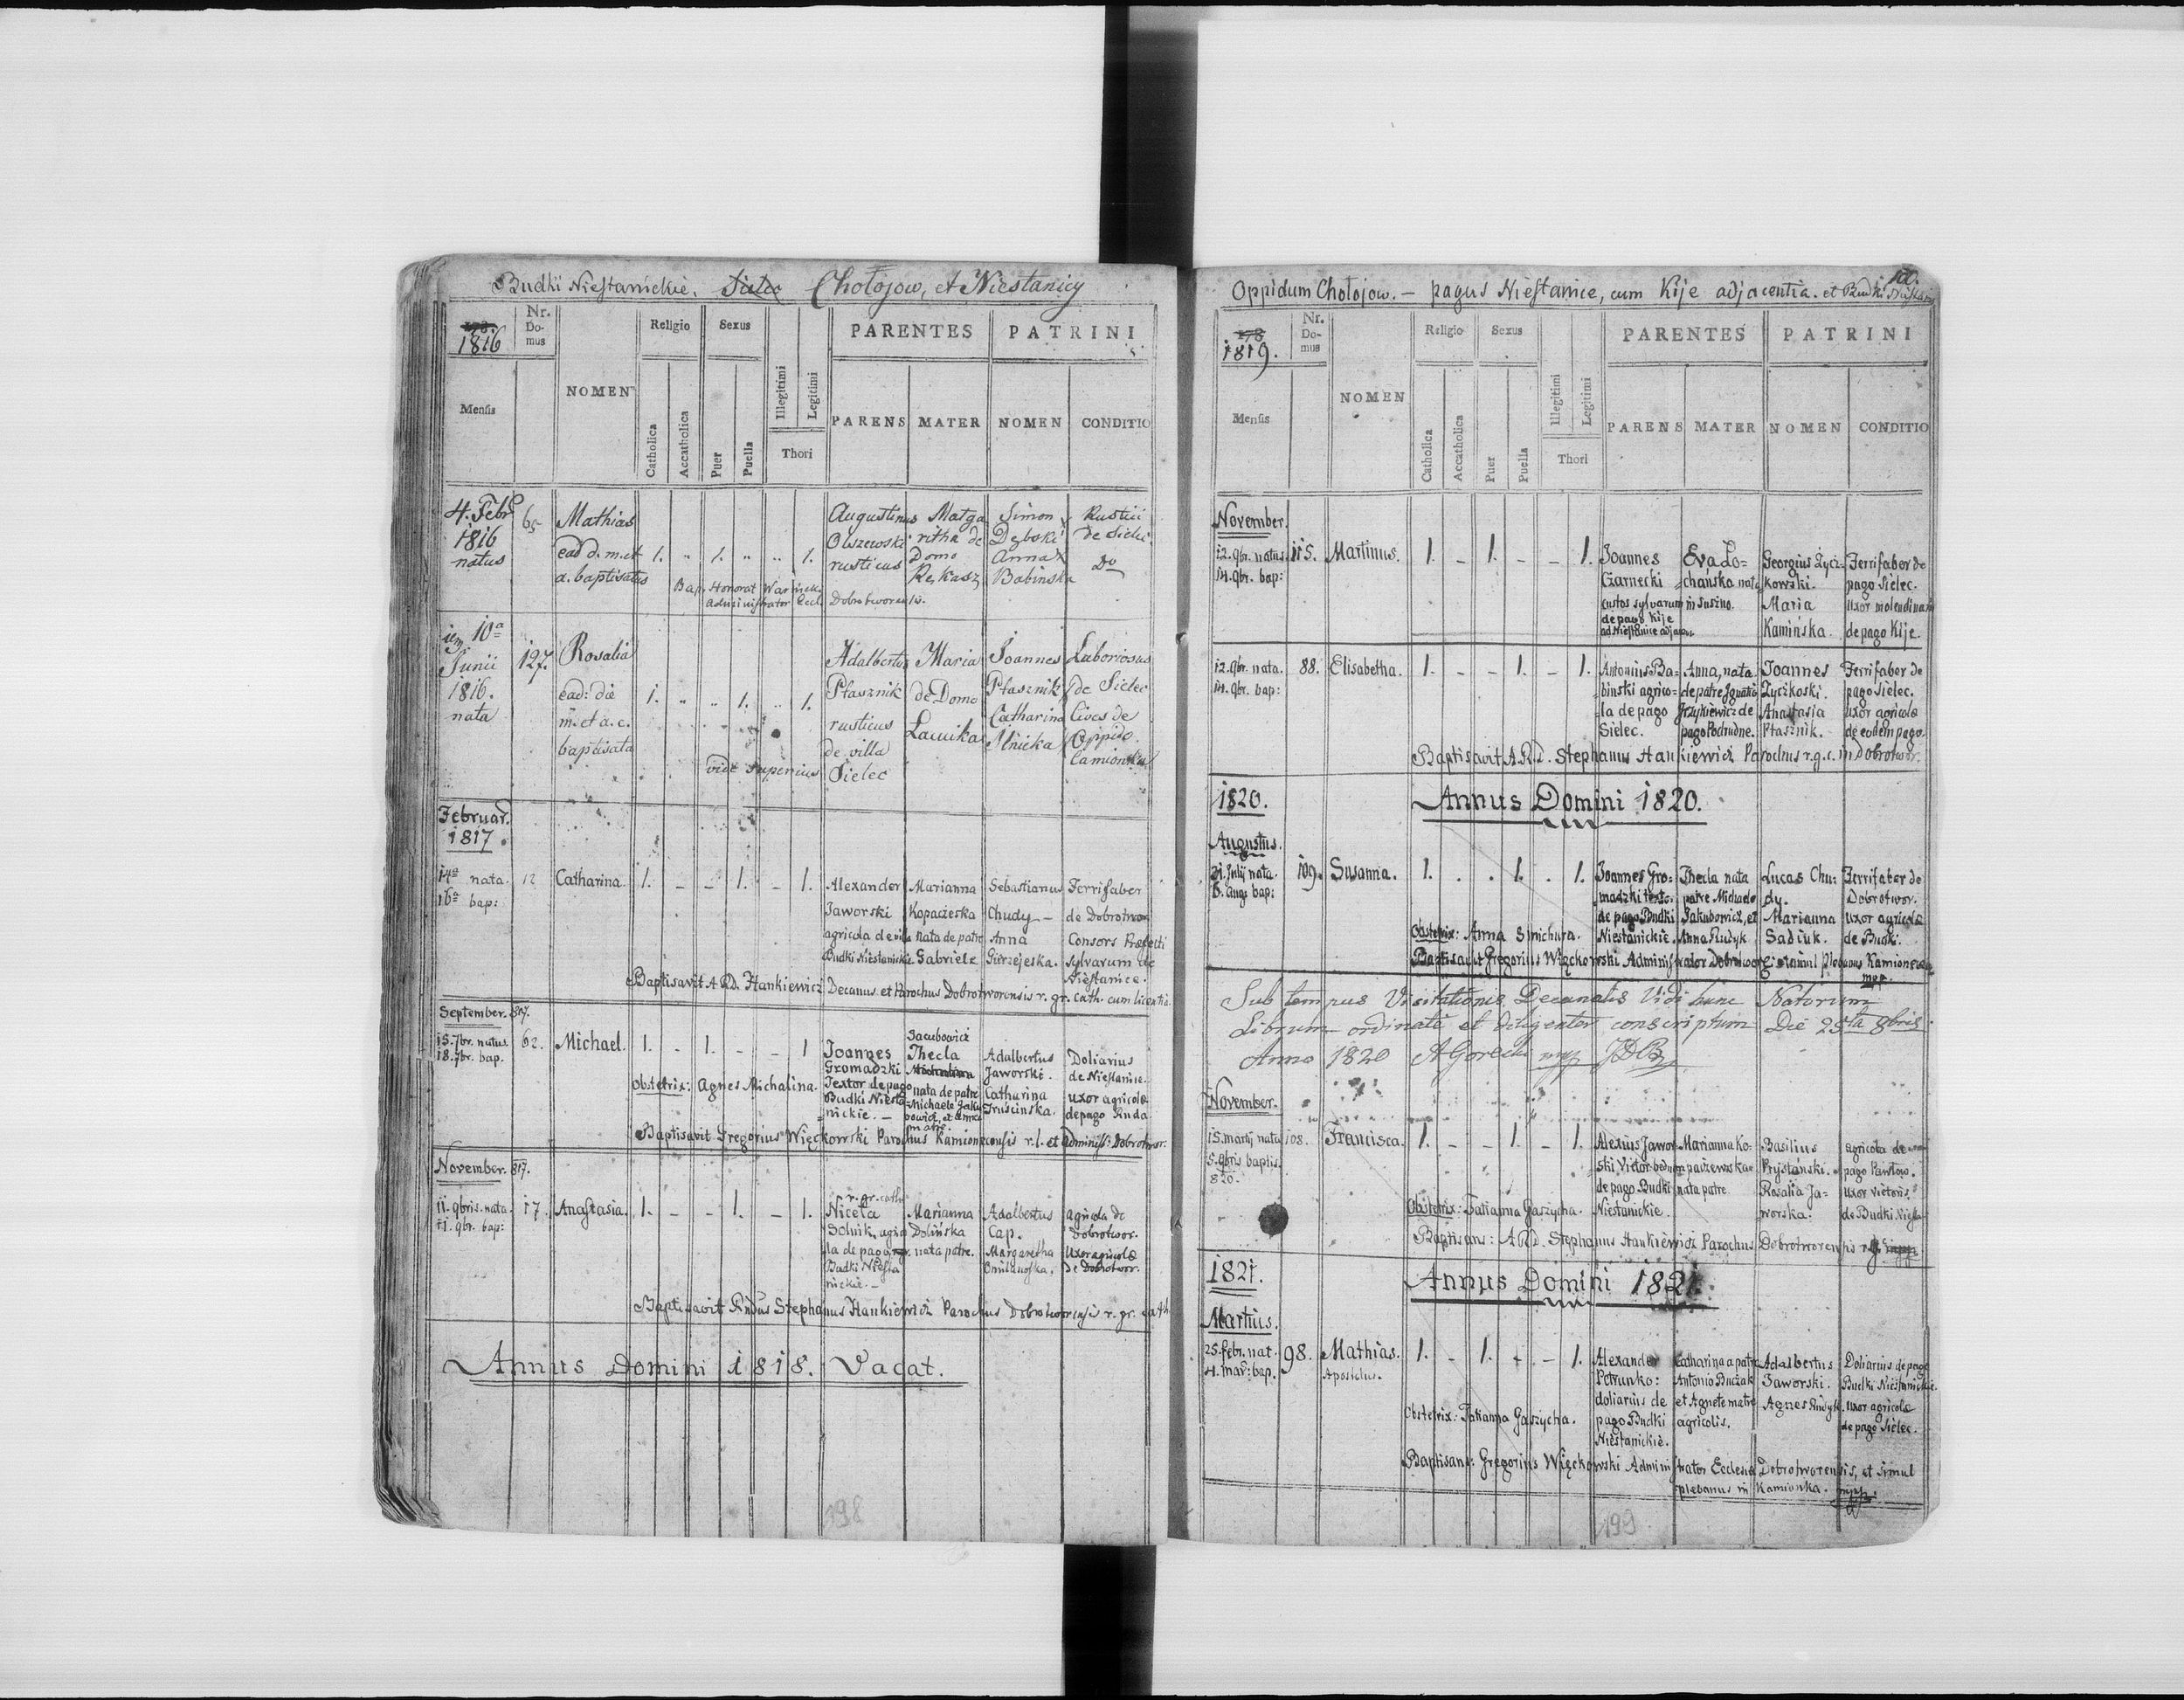 Budki Niestanickie, Sielec Chołojow, et Niestanicy
1816
Nr. Domus
Religio Sexus
PARENTES PATRINI
Mensis
NOMEN
Catholica Accatholica Puer Puella Illegitimi Legitimi
Thori
PARENS MATER NOMEN CONDITIO
4. Febr 65 Mathias Augustinus Matga Simon Rustici
1816 Olszewski ritha de Dębski de Sielec
natus ead d. m. et 1. „ 1. „ „ 1. rusticus Domo Anna Do
a. baptisatus Rękasz Babinska
Bap. Honorat
Administrator Eccl. Dobrotworensis.
10a
Junii 127. Rosalia Adalbertus Maria Joannes Laboriosus
1816. ead: die 1. „ „ 1. „ 1. Ptasznik de Domo Ptasznik de Sielec
nata m. et a. c. rusticus Catharina Cives de
baptisata de villa Oppido
vide superius Sielec Camionka
Februar.
1817.
14a nata. 12 Catharina 1. - - 1. - 1. Alexander Marianna Sebastianus Ferrifaber
16a bap: Jaworski Kopaczeska Chudy - de Dobrotwor
agricola de villa nata de patre Anna Consors Præfecti
Budki Niestanickie Gabriele sylvarum de
Niestanice.
Baptisavit A R.D. Hankiewicz Decanus et Parochus Dobrotworensis r. gr. cath. cum licentia
September. 817.
15. 7br. natus 62. Michael. 1. - 1. - - 1 Joannes Jacubowicz Thecla Adalbertus Doliarius
18. 7br. bap. Gromadzki Jaworski. de Niestanice.
Obstetrix: Agnes Michalina. Textor de pago nata de patre Catharina uxor agricolæ
Budki Niestanickie. - Michaele Jakubowicz, et Anna matre. de pago Ruda
Baptisavit Gregorius Więckowski Parochus Kamionecensis r. l. et Administ: Dobrotwor.
November. 817.
11. 9bris. nata. 17. Anastasia. 1. - - 1. - 1. r. gr. cath. Niceta Marianna Adalbertus agricola de
11. 9br. bap: Solnik, agrico Dolińska Cap. Dobrotwor.
la de pago nata patre. Margaretha Uxor agricolæ
Budki Niestanickie. - de Dobrotwor.
Baptisavit Rndus Stephanus Hankiewicz Parochus Dobrotworensis r. gr. cath.
Annus Domini 1818. Vacat.
198
100.
Oppidum Chołojow. - pagus Niestanice, cum Kije adjacentia. et Budki Niestan
1819.
Nr. Domus
Religio Sexus
PARENTES PATRINI
Mensis
NOMEN
Catholica Accatholica Puer Puella Illegitimi Legitimi
Thori
PARENS MATER NOMEN CONDITIO
November.
12. 9br. natus 115. Martinus. 1. - 1. - - 1. Joannes Eva Lo= Georgius Zyci= Ferrifaber de
14. 9br. bap: Czarnecki chańska nata kowski. pago Sielec.
custos sylvarum in Suszno. Maria uxor molendinarii
de pago Kije Kamińska. de pago Kije.
ad Niestanice adjacen.
12. 9br. nata. 88. Elisabetha. 1. - - 1. - 1. Antonius Ba= Anna, nata Joannes Ferrifaber de
14. 9br. bap: binski agrico= de patre Ignatio Zyczkoski. pago Sielec.
la de pago Jrzykiewicz de Anastasia uxor agricolæ
Sielec. pago Podrudne. Ptasznik. de eodem pago.
Baptisavit A.R.D. Stephanus Hankiewicz Parochus r.g.c. in Dobrotwor.
1820. Annus Domini 1820.
Augustus.
31. Julij nata. 109. Susanna. 1. . . 1. . 1. Joannes Gro= Thecla nata Lucas Chu= Ferrifaber de
6. aug: bap: madzki texto. patre Michaele dy. Dobrotwor.
de pago Budki Jakubowicz, et Marianna uxor agricolæ
Obstetrix: Anna Smichura. Niestanickie. Anna Rudyk Sadiuk. de Budki.
Baptisavit Gregorius Więckowski Administrator Dobrotwor et simul Plebanus Kamionecen
mpp.
Sub tempus Visitationis Decanalis Vidi hunc Natorum
Librum ordinate et diligenter conscriptum Die 25ta 8bris
Anno 1820 A Gorecki mpp
November.
15. martij nata 108. Francisca. 1. - - 1. - 1. Alexius Jawor= Marianna Ko= Basilius agricola de
5. 9bris baptis. ski Vietor pago Pawłow.
820. de pago Budki nata patre Rosalia Ja= uxor vietoris.
Obstetrix: Tatianna Gaszycha. Niestanickie. worska. de Budki Niesta
Baptisans: A R.D. Stephanus Hankiewicz Parochus Dobrotworensis
1821. Annus Domini 1821.
Martius.
25. febr. nat. 98. Mathias. 1. - 1. - - 1. Alexander Catharina a patre Adalbertus Doliarius de pago
4. mar: bap. Apostolus. Petrunko: Antonio Buczak Jaworski. Budki Niestanickie.
doliarius de et Agnete matre Agnes Rudyk. uxor agricolæ
Obstetrix: Tatianna Gaszycha. pago Budki agricolis. de pago Sielec.
Niestanickie.
Baptisans: Gregorius Więckowski Administrator Ecclesiæ Dobrotworensis, et simul
plebanus in Kamionka. mpp.
199